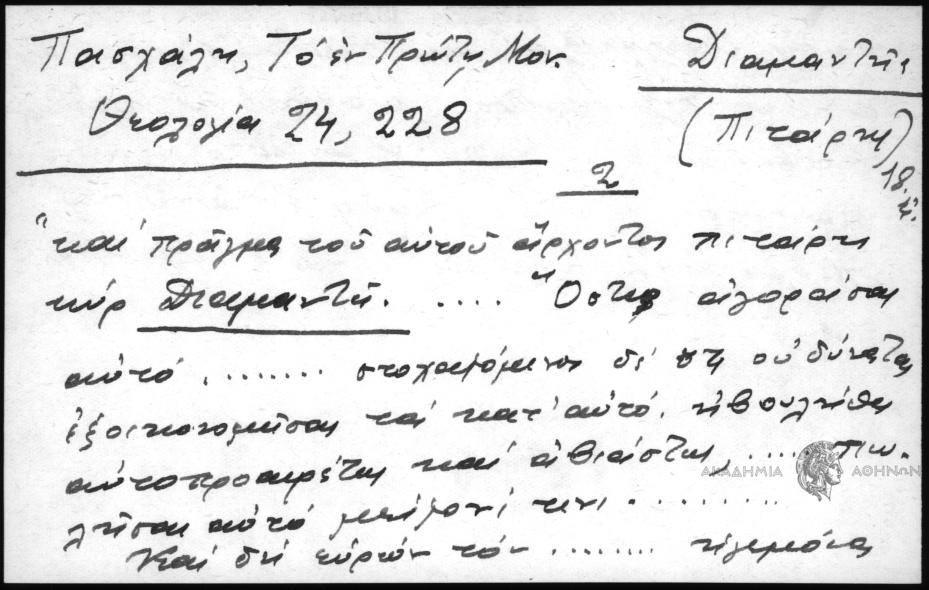 Πασχάλη, Τὸ ἐν Πρώτῃ Μον.
Θεολογία 24, 228
Διαμαντῆς
(Πιτάρης)
18.
2
"καὶ πρᾶγμα τοῦ αὐτοῦ ἄρχοντος πιτάρη
κὺρ Διαμαντῆ. .... "Ὅστις ἀγοράσας
αὐτό ........ στοχαζόμενος δὲ ὅτι οὐ δύναται
ἐξοικονομῆσαι τὰ κατ' αὐτό, ἠβουλήθη
αὐτοπροαιρέτως καὶ ἀβιάστως, .... πω-
λῆσαι αὐτὸ μείζονί τινι .........
Καὶ δὴ εὑρὼν τὸν ........ ἡγεμόνα
ΑΚΑΔΗΜΙΑ ΑΘΗΝΩΝ